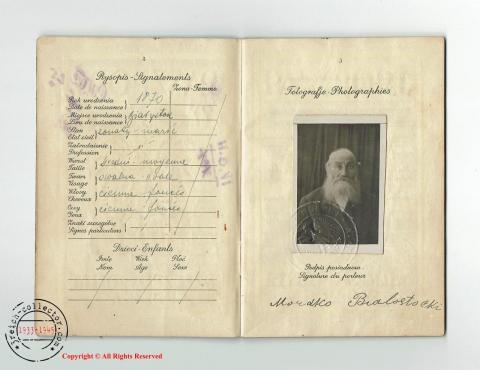 4
Rysopis - Signalements
Żona - Femme
Rok urodzenia 1870
Date de naissance
Miejsce urodzenia Białystok
Lieu de naissance
Stan żonaty - marié
Etat civil
Zatrudnienie
Profession
Wzrost średni - moyenne
Taille
Twarz owalna - ovale
Visage
Włosy ciemne foncés
Cheveux
Oczy ciemne foncés
Yeux
Znaki szczególne
Signes particuliers
Dzieci - Enfants
Imię Wiek Płeć
Nom Age Sexe
5
Fotografje - Photographies
Podpis posiadacza
Signature du porteur
Mordko Białostocki
jreich-collector.com
1933-1945
Copyright © All Rights Reserved